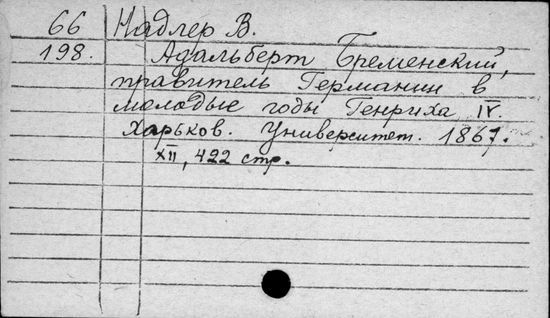 66 Надлер В.
198. Адальберт Бременский,
правитель Германии в
молодые годы Генриха IV.
Харьков. Университет. 1867.
XII, 422 стр.